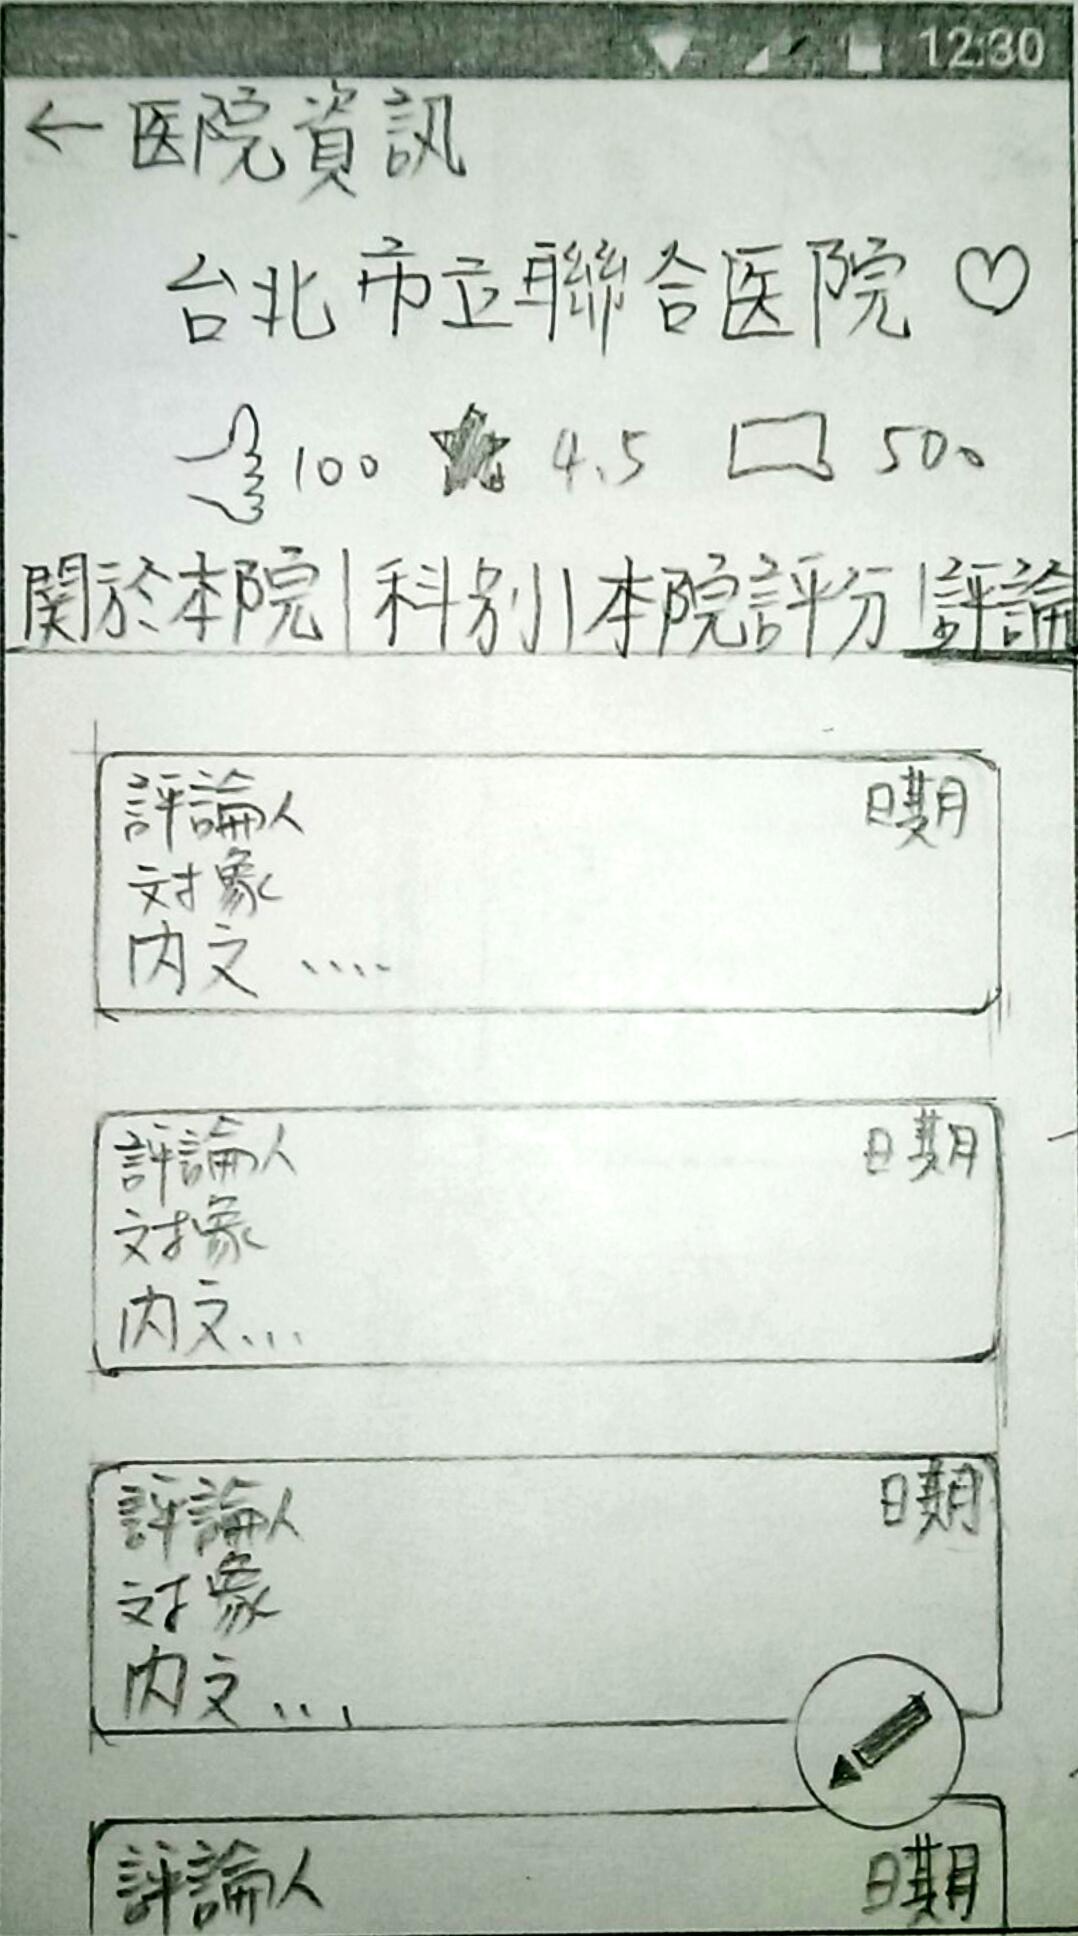 12:30
←医院資訊
台北市立聯合医院♡
100 ★ 4.5 500
関於本院|科別|本院評分|評論
評論人 日期
対象
内文 ....
評論人 日期
対象
内文...
評論人 日期
対象
内文...
評論人 日期